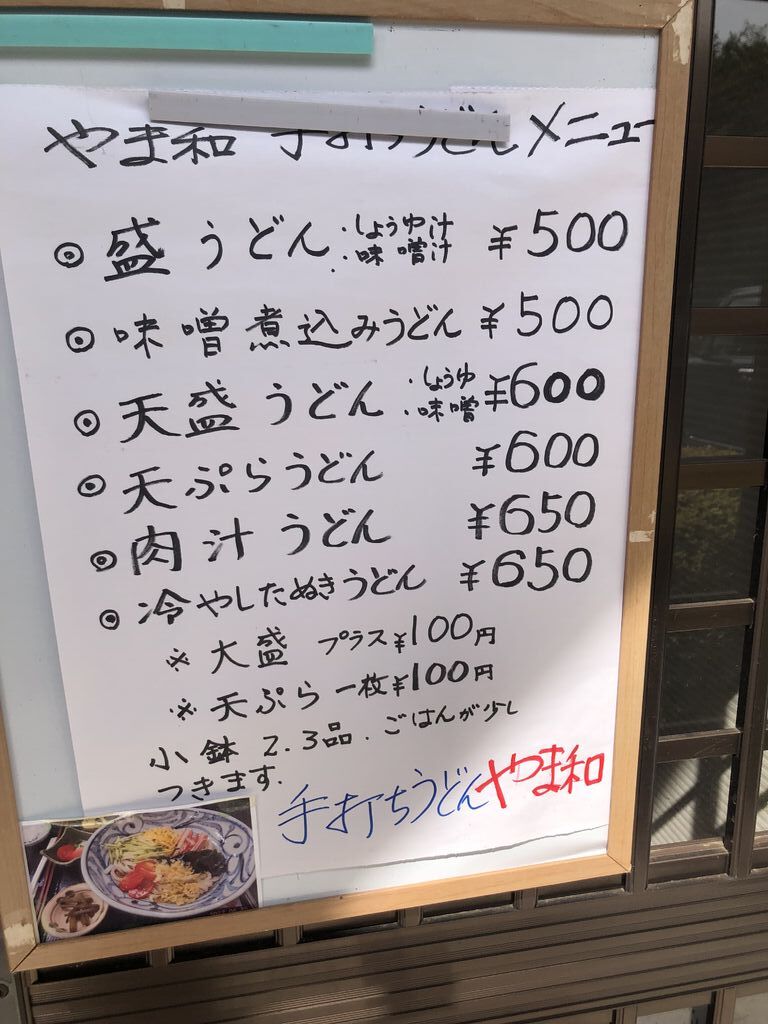 やま和 手打ちうどんメニュー
◎ 盛うどん ・しょうゆ汁 ・味噌汁 ¥500
◎ 味噌煮込みうどん ¥500
◎ 天盛うどん ・しょうゆ ・味噌 ¥600
◎ 天ぷらうどん ¥600
◎ 肉汁うどん ¥650
◎ 冷やしたぬきうどん ¥650
※ 大盛 プラス¥100円
※ 天ぷら一枚¥100円
小鉢2.3品.ごはんが少し
つきます.
手打ちうどんやま和